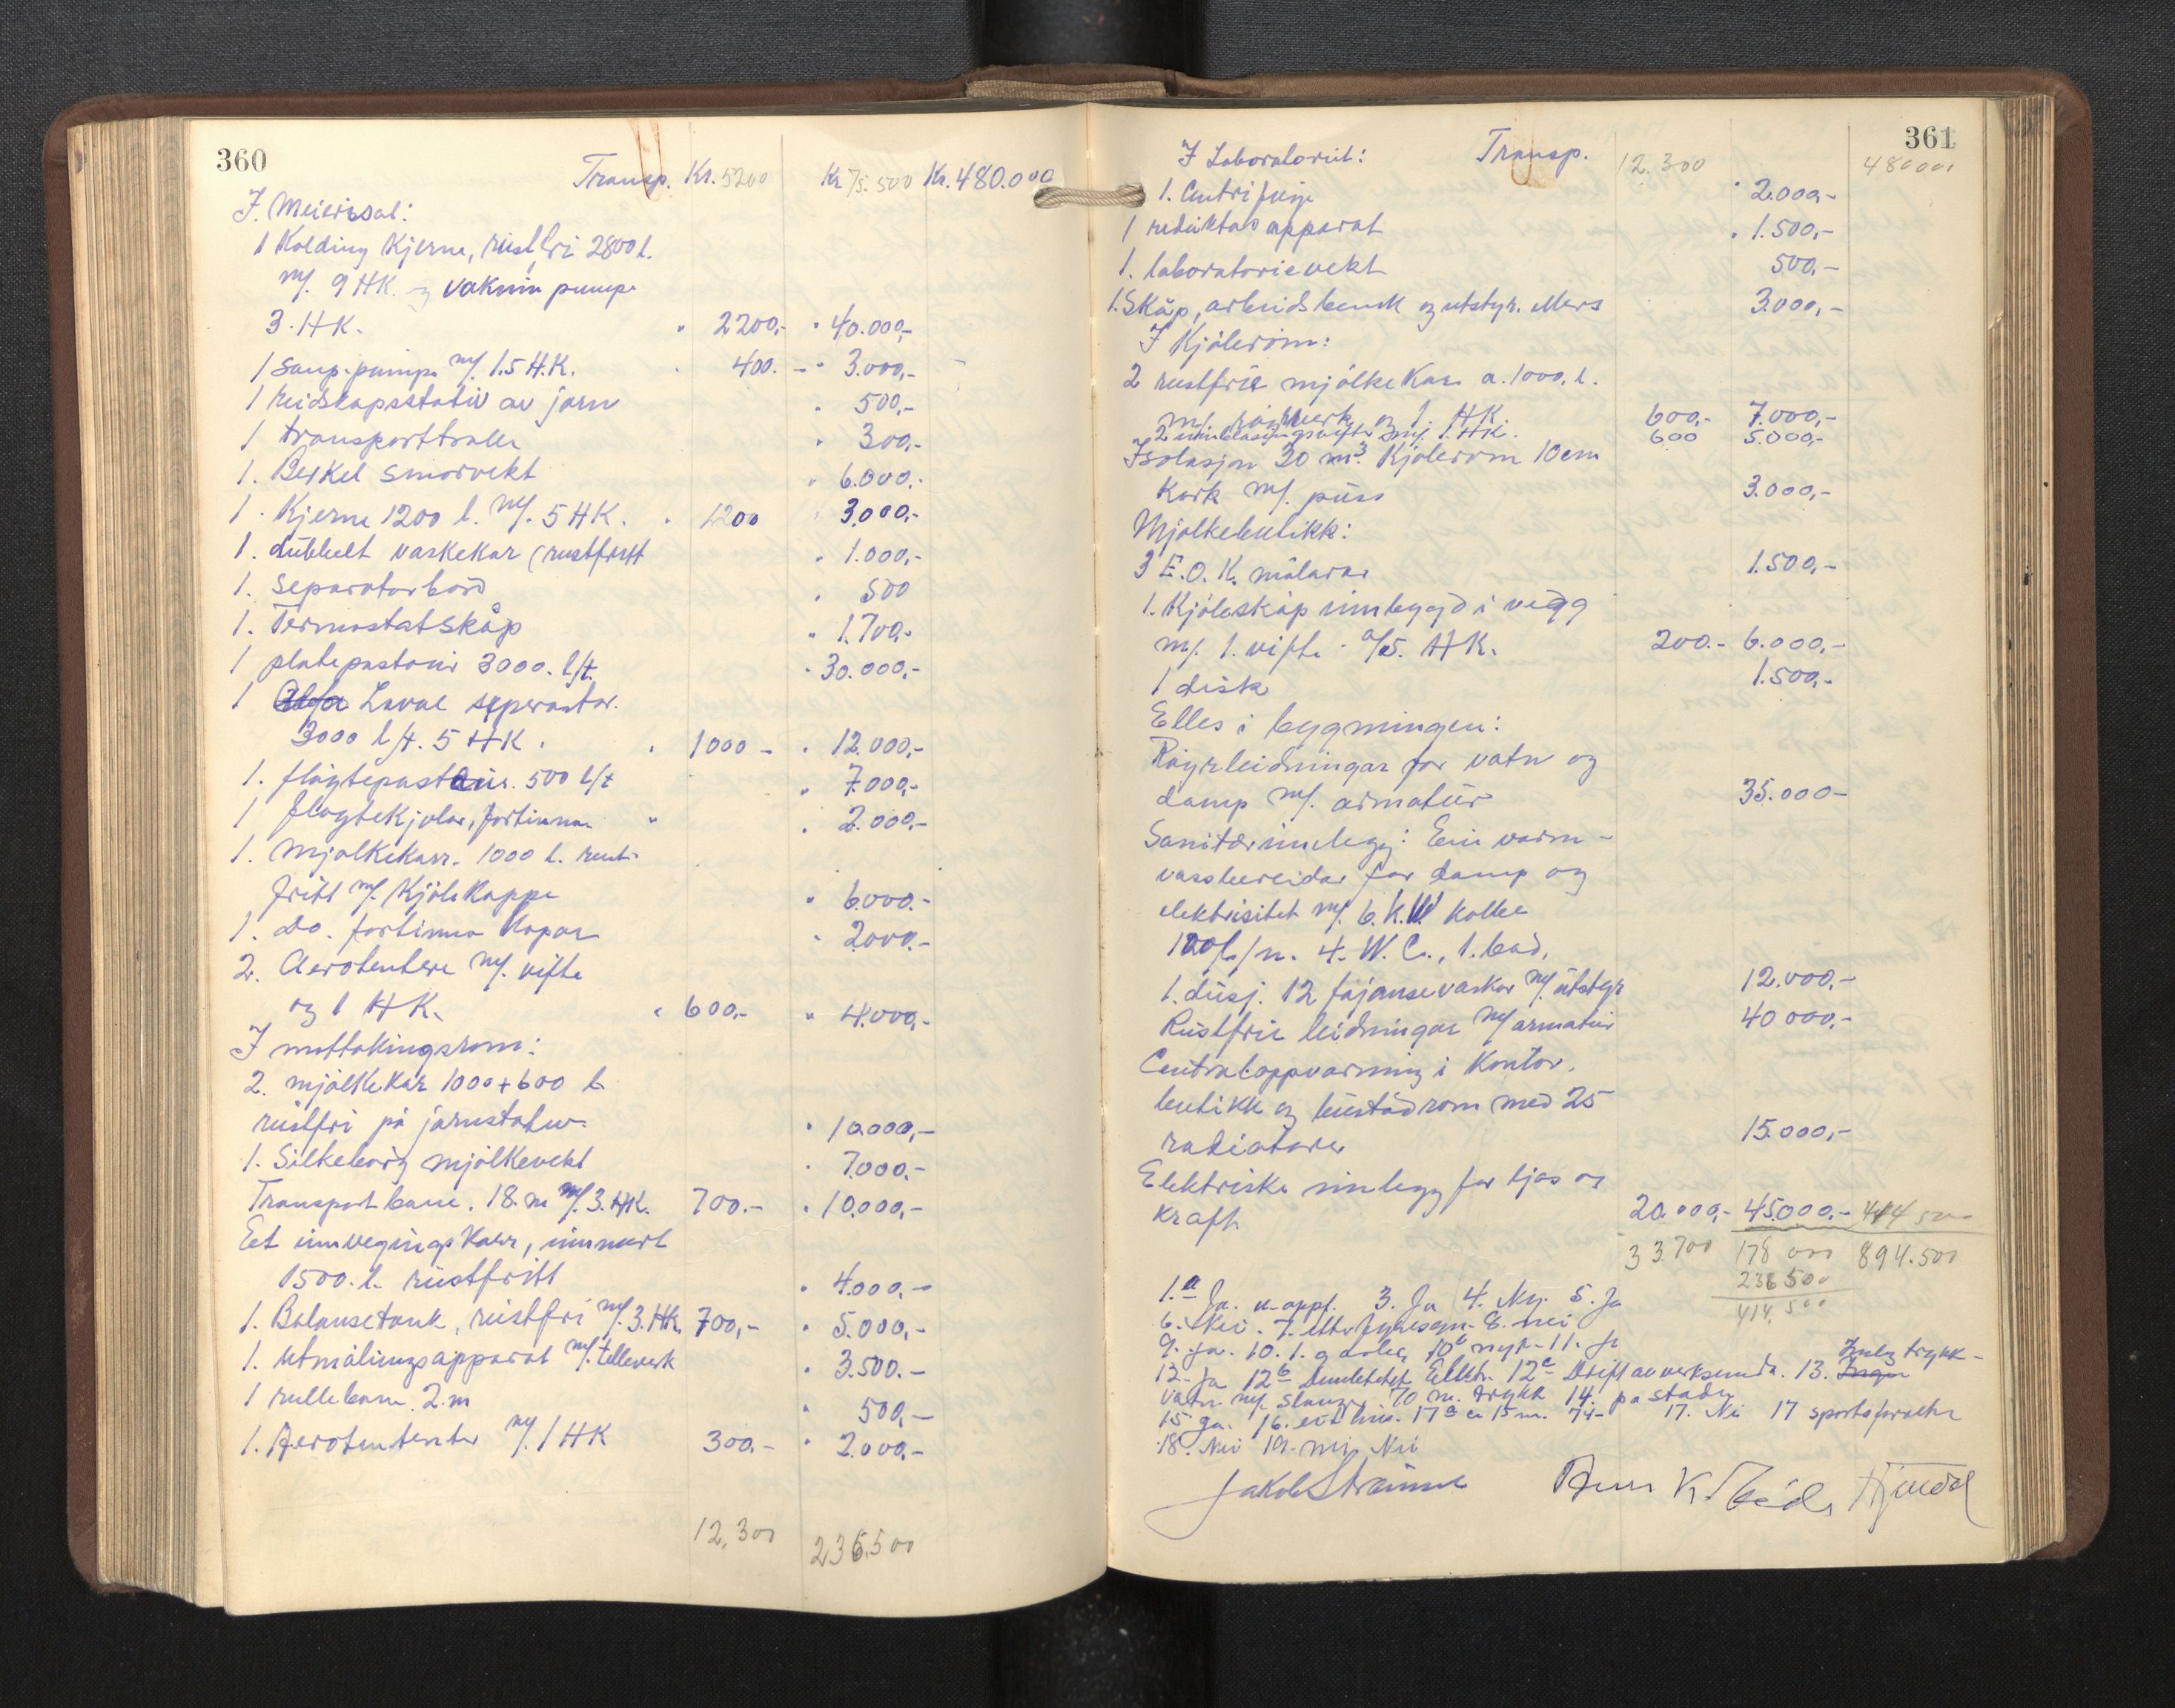 360
Transp. Kr. 5200 Kr 75.500 Kr. 480.000
I Meierisal:
1 Kolding Kjerne, rustfri 2800 l.
m/. 9 HK. og vakuum pumpe
3. HK. " 2200,- " 40.000,-
1 saup.pumpe m/. 1.5 H.K. " 400.- " 3.000,-
1 reidskapsstativ av jarn " 500,-
1 transporttralle " 300,-
1. Berkel smørvekt " 6.000.-
1. Kjerne 1200 l. m/. 5 HK. " 1200 " 3.000,-
1. dubbelt vaskekar (rustfritt " 1.000,-
1. separatorbord " 500
1. Termostatskåp " 1.700,-
1 platepastøur 3000. l/t. " 30.000,-
1 Alfa Laval seperator.
3000 l/t. 5 HK. " 1000 - " 12.000,-
1. fløytepastøur. 500 l/t " 7.000,-
1 fløytekjølar, fortinna. " " 2.000,-
1. Mjølkekarr. 1000 l. rust-
fritt m/. Kjølekappe " 6.000.-
1. do. fortinna kopar " 2.000.-
2. Aerotemtere m/. vifte
og 1 HK. " 600,- " 4.000,-
I mottakingsrom:
2. mjølkekar 1000 + 600 l.
rustfri på jarnstativ. " 10.000,-
1. Silkeborg mjølkevekt " 7.000.-
Transportbane. 18. m m/. 3. HK. 700.- " 10.000,-
Eet innvegings Karr, innmurt
1500. l. rustfritt " 4.000,-
1. Balansetank, rustfri m/. 3. HK. 700,- " 5.000,-
1. utmålingsapparat m/. telleverk " 3.500.-
1 rullebane. 2. m " 500,-
1. Aerotemter m/. 1 HK 300.- " 2.000,-
12,300 236.500
361
I Laboratoriet: Transp. 12.300 480000
1. Centrifuge " 2.000,-
1 reduktas apparat " 1.500,-
1. laboratorievekt 500,-
1. Skåp, arbeidsbenk og utstyr. elles 3.000,-
I Kjølerom:
2 rustfrie mjølkekar a. 1000. l.
m/. røreverk og 1. HK. 600,- 7.000,-
2 innblåsingsvifter m/. 1. HK. 600 5.000,-
Isolasjon 30 m³. Kjølerom 10 cm
Kork m/. puss 3.000,-
Mjølkebutikk:
3 E.O.K. målarar 1.500,-
1. Kjøleskåp innbygd i vegg
m/. 1. vifte. a/5. HK. 200.- 6.000,-
1 disk 1.500,-
Elles i bygningen:
Røyrleidningar for vatn og
damp m/. armatur 35.000-
Sanitærinnlegg: Ein varm-
vassbereidar for damp og
elektrisitet m/. 6. K.W. kolbe
100 l/n. 4. W.C., 1. bad,
1. dusj. 12 fajansevaskar m/. utstyr 12.000,-
Rustfrie leidningar m/ armatur 40 000,-
Centraloppvarming i Kontor,
butikk og bustadrom med 25
radiatorer 15.000,-
Elektriske innlegg for ljos og
kraft 20.000,- 45.000,- 414 500
33700 178 000 894.500
236 500
414,500
1.a Ja. u-oppf. 3. Ja 4. Nei. 5. Ja
6. Nei. 7. Etter fyresegn. 8. nei
9. Ja. 10. 1. g. 10b 11. Ja
12. Ja 12b Elektr. 12c Drift av verksemda. 13. Ingen trykk-
vatn m/. slange 70 m. trykk 14. på staden
15 Ja. 16. eit hus. 17a ca 15 m. 74- 17. Nei 17
18. Nei 19. Nei
Jakob
K.